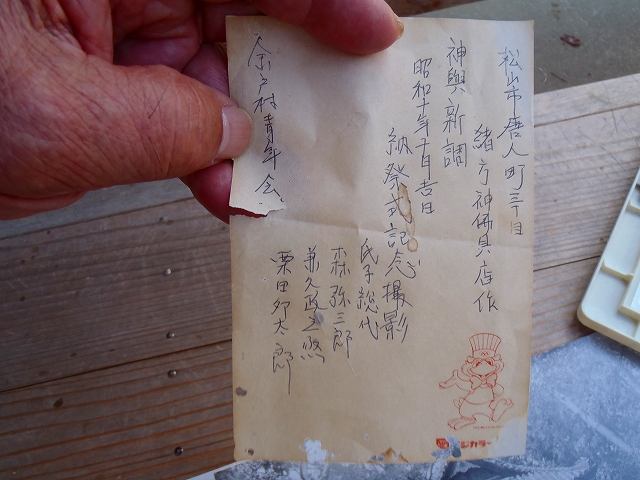 松山市唐人町三丁目
緒方神佛具店作
神輿新調
昭和十年十月吉日
納祭式記念撮影
氏子総代
森弥三郎
兼久政之
栗田卯太郎
余戸村青年会
ジカラー